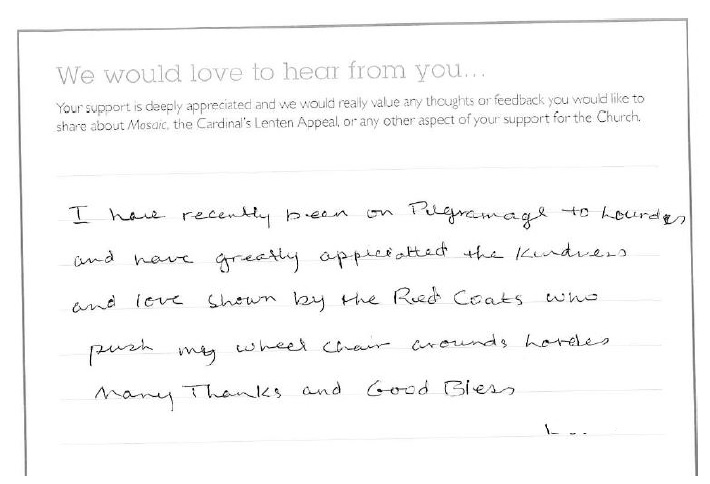 We would love to hear from you...
Your support is deeply appreciated and we would really value any thoughts or feedback you would like to
share about Mosaic, the Cardinal's Lenten Appeal, or any other aspect of your support for the Church.
I have recently been on Pilgramage to Lourdes
and have greatly appiciatted the Kindness
and love shown by the Red Coats who
push my wheel chair arounds
Many Thanks and Good Bless